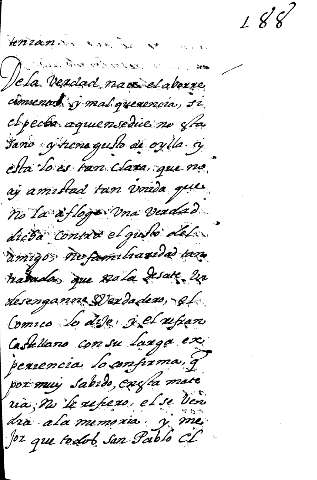 188
tenian.
De la verdad nace el aborre
cimiento y mal querencia, si
el pecho a quien se dice no esta
sano y tiene gusto de oylla. y
esta lo es tan clara, que no
ay amistad tan unida que
no la afloge una verdad
dicha contra el gusto del
amigo; no familiaridad tan
trabada, que no la desate un
desengano verdadero, el
Comico lo dije y el refran
Castellano con su larga ex
periencia lo confirma, q
por muy sabido, en esta mate
ria, no le refiero, el se ven
dra a la memoria y me
jor que todos, San Pablo El